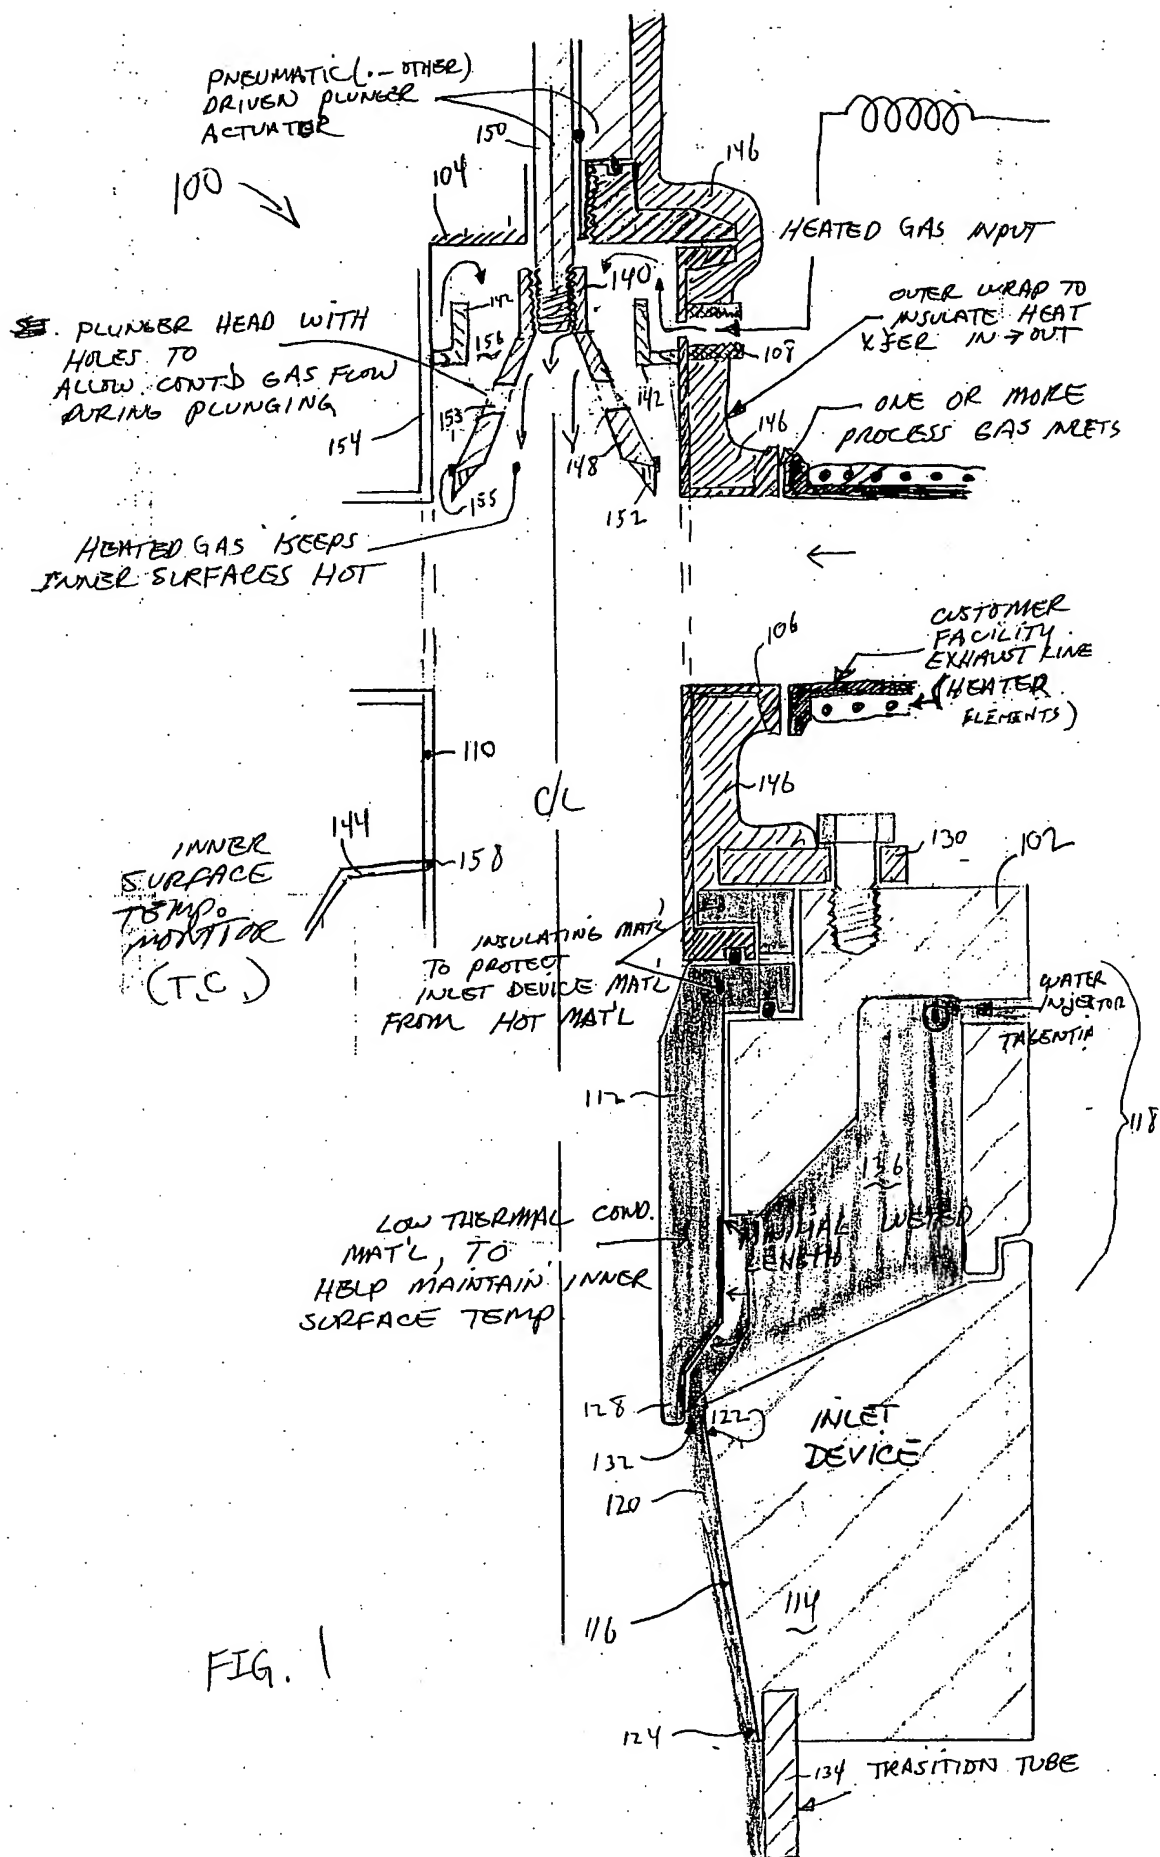 PNEUMATIC (.- OTHER)
DRIVEN PLUNGER
ACTUATER
150
100
104
146
HEATED GAS INPUT
142
140
OUTER WRAP TO
INSULATE HEAT
XFER IN → OUT
PLUNGER HEAD WITH
HOLES TO
ALLOW CONT'D GAS FLOW
DURING PLUNGING
156
108
142
153
154
148
146
ONE OR MORE
PROCESS GAS INLETS
155
152
HEATED GAS KEEPS
INNER SURFACES HOT
CUSTOMER
FACILITY
EXHAUST LINE
(HEATER
ELEMENTS)
106
110
C/L
146
144
158
130
102
INNER
SURFACE
TEMP.
MONITOR
(T.C.)
INSULATING MAT'L
TO PROTECT
INLET DEVICE MAT'L
FROM HOT MAT'L
WATER
INJECTOR
TAGENTIA
112
118
136
LOW THERMAL COND.
MAT'L, TO
HELP MAINTAIN INNER
SURFACE TEMP
WETED
LENGTH
128
122
132
INLET
DEVICE
120
116
114
FIG. 1
124
134 TRASITION TUBE